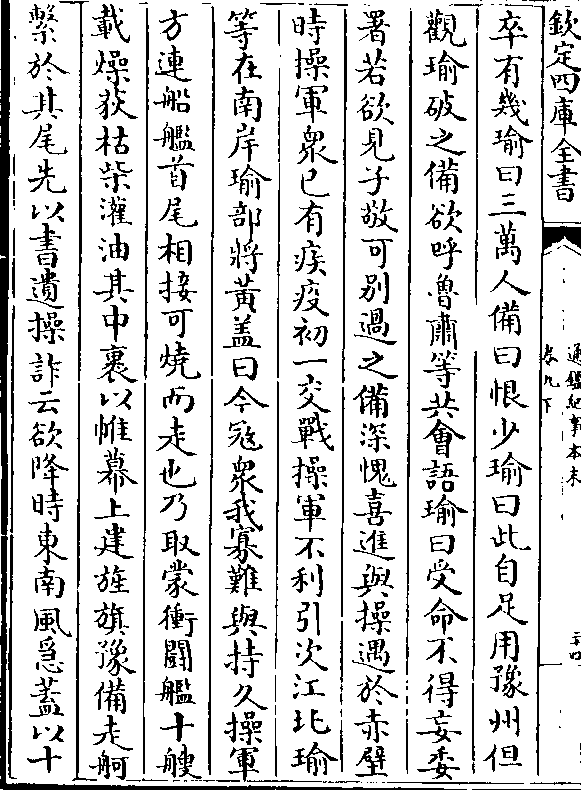 欽定四庫全書
通鑑紀事本末
卷九下
卒有幾瑜曰三萬人備曰恨少瑜曰此自足用豫州但
觀瑜破之備欲呼魯肅等共會語瑜曰受命不得妄委
署若欲見子敬可別過之備深愧喜進與操遇於赤壁
時操軍衆已有疾疫初一交戰操軍不利引次江北瑜
等在南岸瑜部將黃盖曰今冦衆我寡難與持久操軍
方連船艦首尾相接可燒而走也乃取蒙衝鬪艦十艘
載燥荻枯柴灌油其中裹以帷幕上建旌旗豫備走舸
繫於其尾先以書遺操詐云欲降時東南風急蓋以十